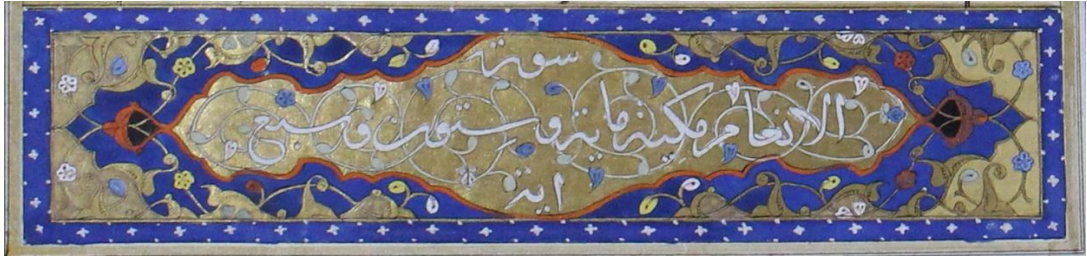 سورة
الانعام مكية ماية وستون وسبع
اية